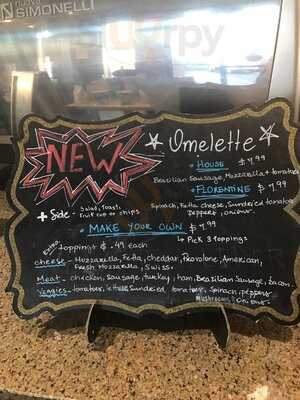 nuova
SIMONELLI
NEW
Omelette
• HOUSE $7.99
Brazilian Sausage, Mozzarella + tomatoes
• FLORENTINE $7.99
Spinach, Fetta cheese, Sundried tomatoes
Peppers, onions.
+ Side: Salad, Toast,
Fruit cup or chips
• MAKE YOUR OWN $7.99
↳ Pick 3 toppings
Extra
topping $.49 each
cheese - Mozzarella, Fetta, cheddar, Provolone, American,
Fresh Mozzarella, Swiss.
Meat - chicken, sausage, turkey, Ham, Brazilian Sausage, bacon.
Veggies - tomatoes, lettuce, Sundried tomatoes, Spinach, peppers
Mushrooms, Onions